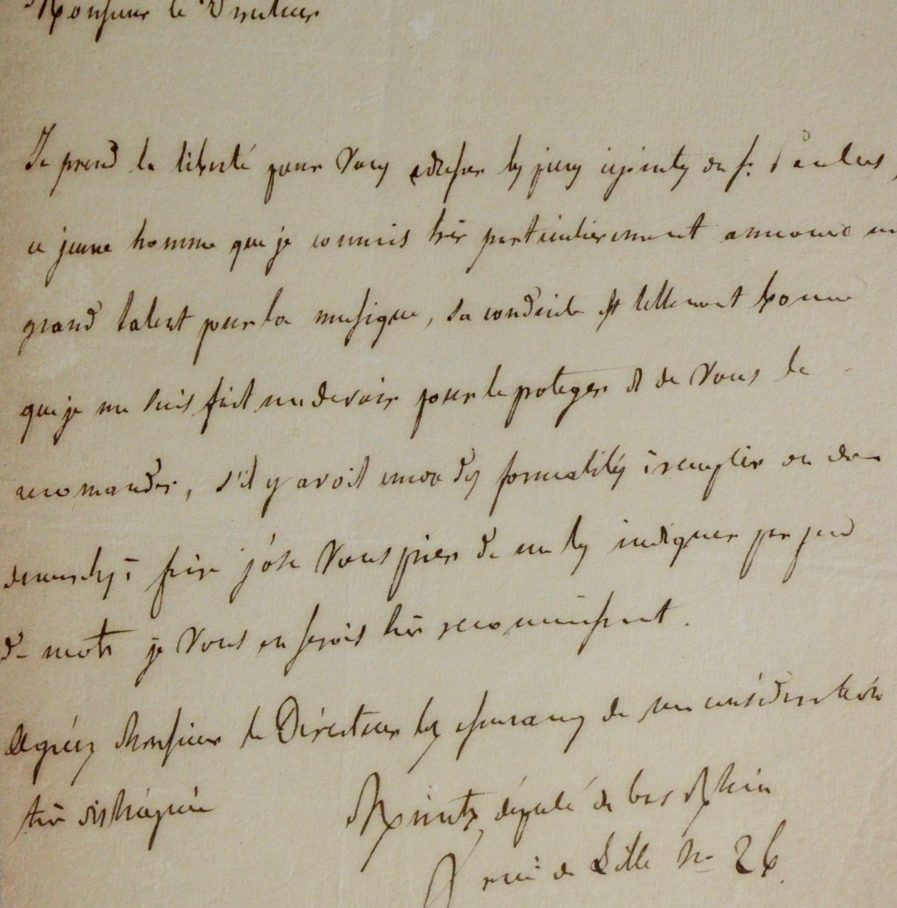 Monsieur le Directeur
Je prend la liberté pour vous adresser les pieces cijointes de Sr.
ce jeune homme que je connais très particulierement annonce un
grand talent pour la musique, sa conduite est tellement bonne
que je me suis fait un devoir pour le proteger et de vous le
recomander, s'il y avoit encor des formalités à remplir ou des
demarches à faire j'ose vous prier de me les indiquer par peu
de mots je vous en serois très reconnaissant.
Agréez Monsieur le Directeur les assurances de ma consideration
très distinguée
député de bas Rhin
rue de Lille No 26.